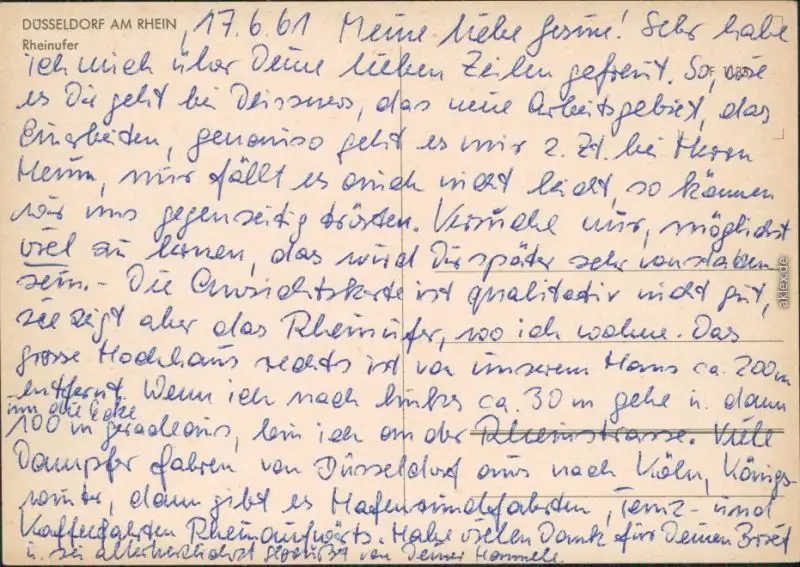 DÜSSELDORF AM RHEIN
Rheinufer
17.6.61 Meine liebe Gesine! Sehr habe
ich mich über Deine lieben Zeilen gefreut. So, wie
es Dir geht bei Deissners, das neue Arbeitsgebiet, das
Einarbeiten, genauso geht es mir z. Zt. bei Herrn
Heun, nur fällt es auch nicht leicht, so können
wir uns gegenseitig trösten. Versuche nur, möglichst
viel zu lernen, das wird Dir später sehr von Nutzen
sein. - Die Ansichtskarte ist qualitativ nicht gut,
sie zeigt aber das Rheinufer, wo ich wohne. Das
grosse Hochhaus rechts ist von unserem Haus ca. 200 m
entfernt. Wenn ich nach links ca. 30 m gehe u. dann
um die Ecke
100 m geradeaus, bin ich an der Rheinstrasse. Viele
Dampfer fahren von Düsseldorf aus nach Köln, Königs-
winter, dann gibt es Hafenrundfahrten, Tanz- und
Kaffeefahrten Rheinaufwärts. Habe vielen Dank für Deinen Brief
u. sei allerherzlichst gegrüßt von Deiner
akpool.de